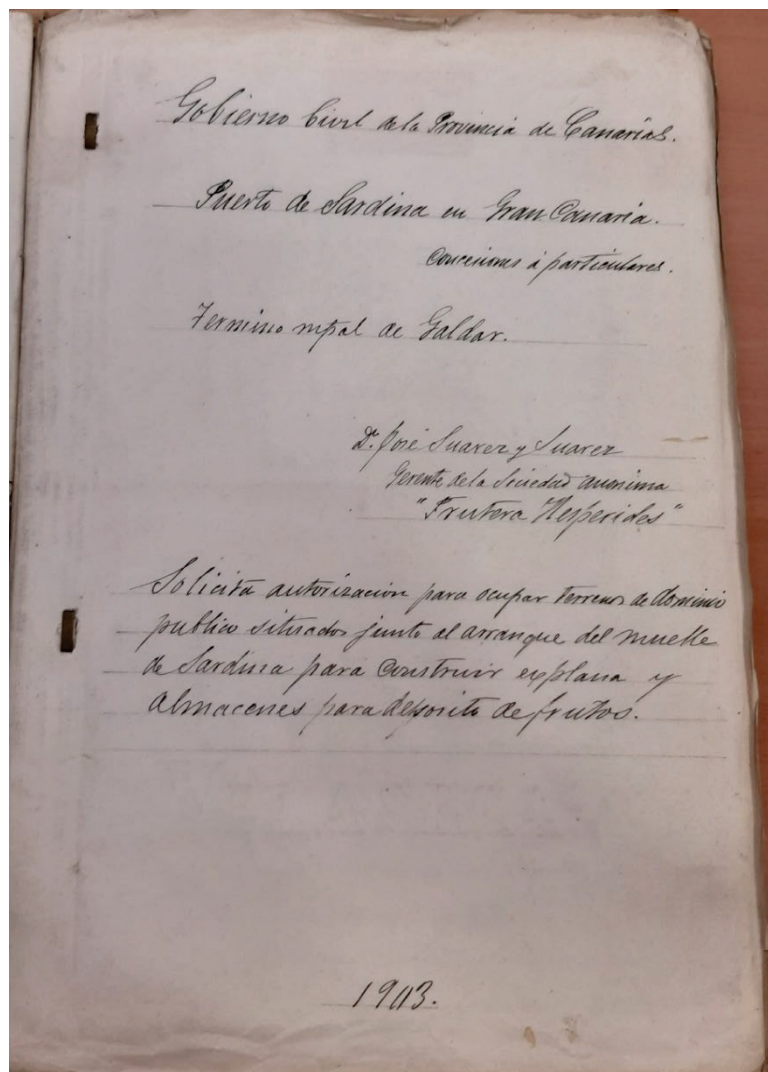 Gobierno Civil de la Provincia de Canarias.
Puerto de Sardina en Gran Canaria.
Concesiones á particulares.
Termino mpal de Galdar.
Dn. José Suarez y Suarez
Gerente de la Sociedad anonima
"Frutera Hesperides"
Solicita autorización para ocupar terrenos de dominio
publico situados junto al arranque del muelle
de Sardina para construir explana y
almacenes para deposito de frutos.
1913.